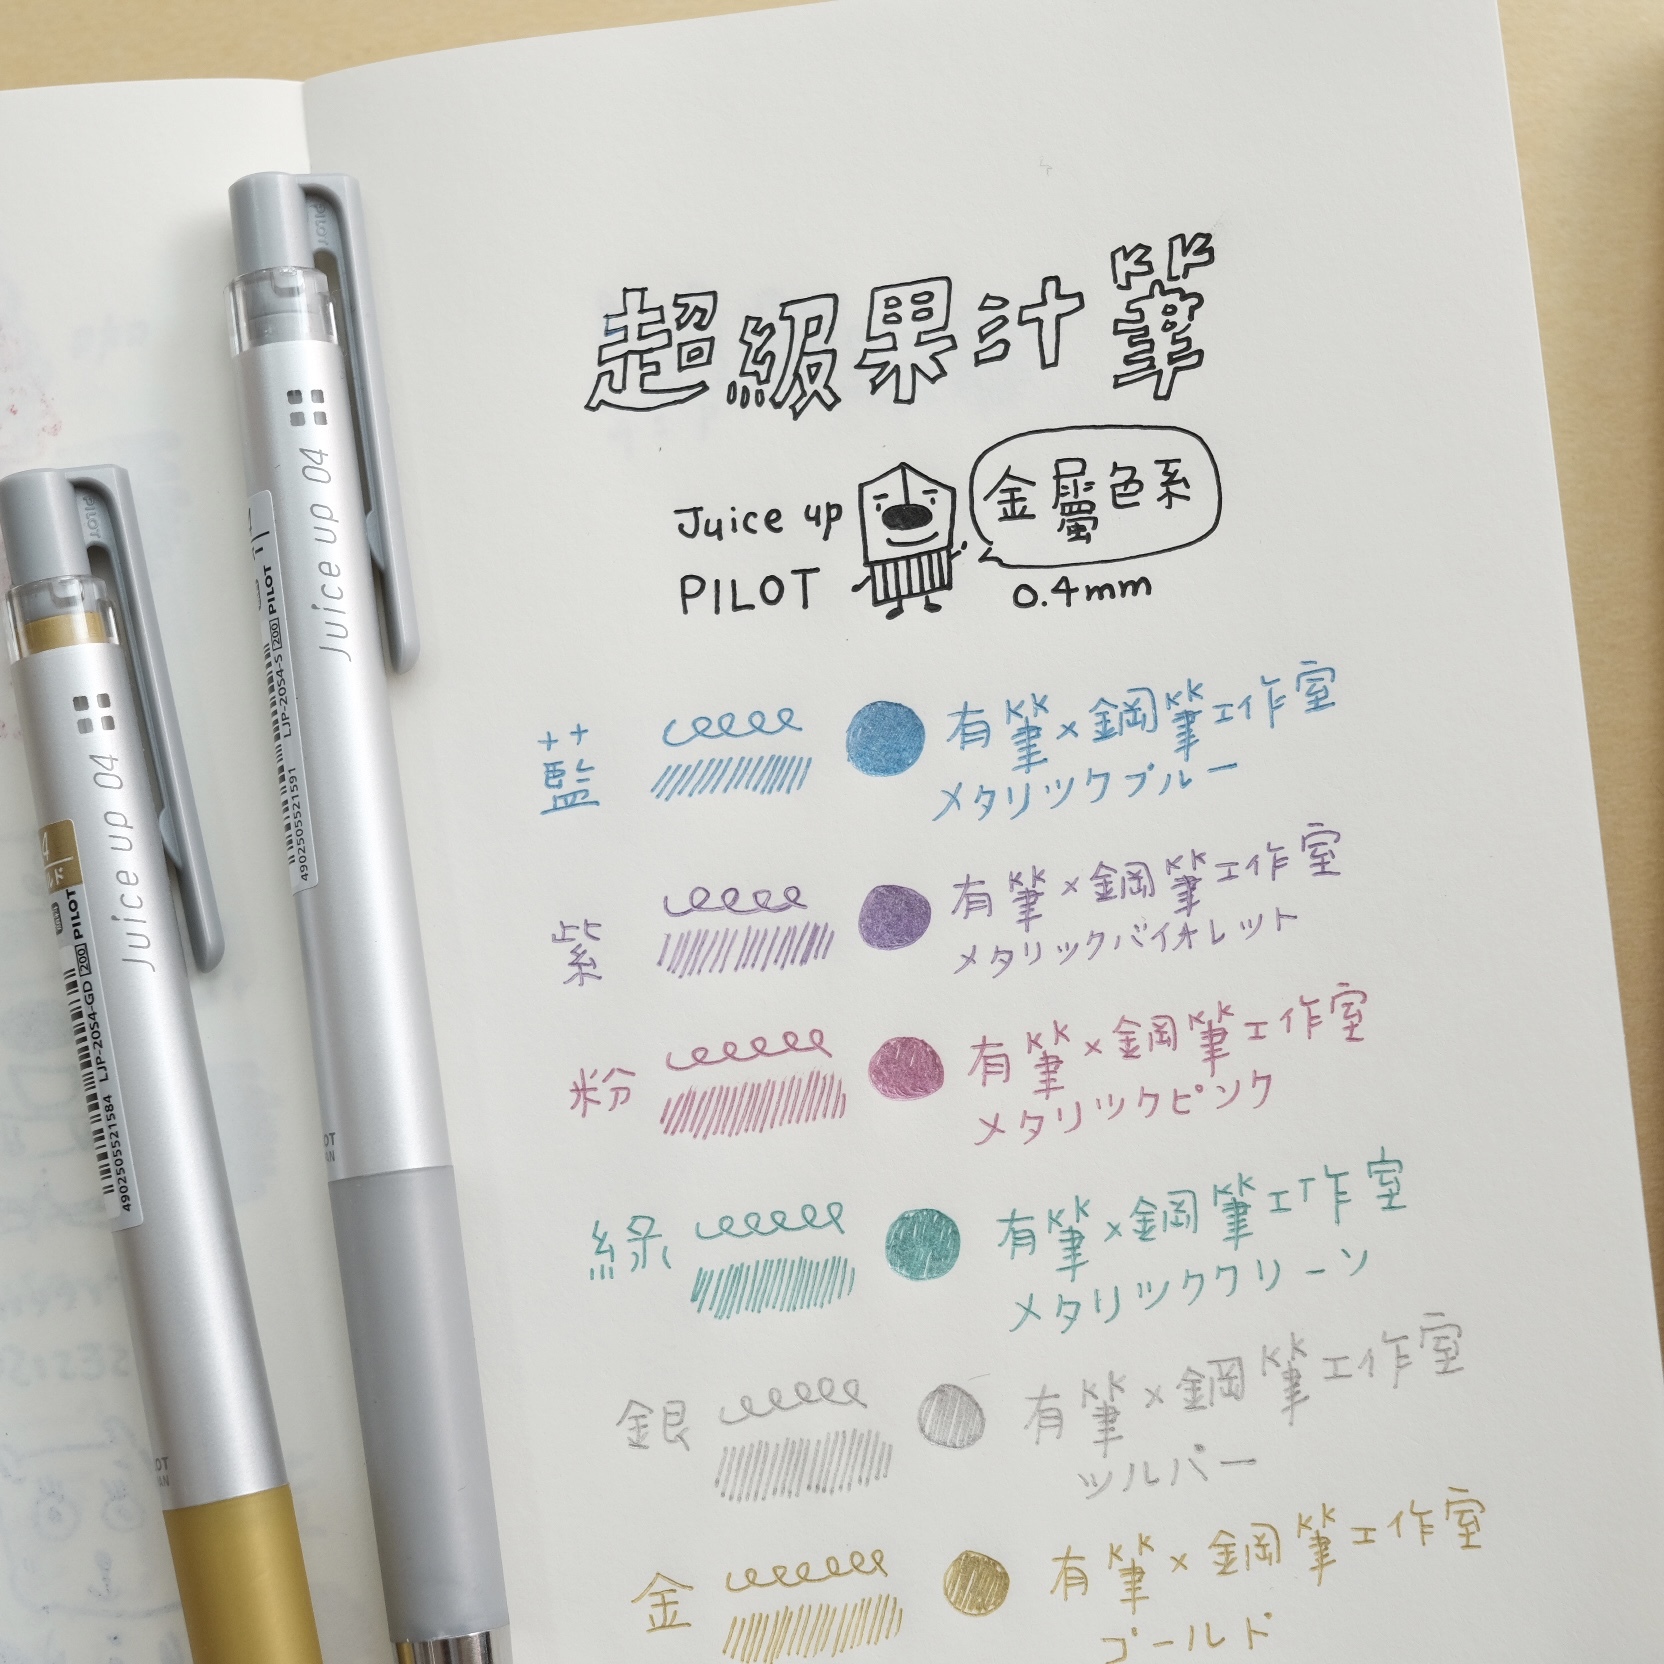 超級果汁筆
Juice up
PILOT
金屬色系
0.4mm
藍
有筆×鋼筆工作室
メタリックブルー
紫
有筆×鋼筆工作室
メタリックバイオレット
粉
有筆×鋼筆工作室
メタリックピンク
綠
有筆×鋼筆工作室
メタリックグリーン
銀
有筆×鋼筆工作室
ツルバー
金
有筆×鋼筆工作室
ゴールド
PILOT
Juice up 04
LJP-20S4-S 200 PILOT
4902505521591
PILOT
Juice up 04
LJP-20S4-GD 200 PILOT
4902505521584